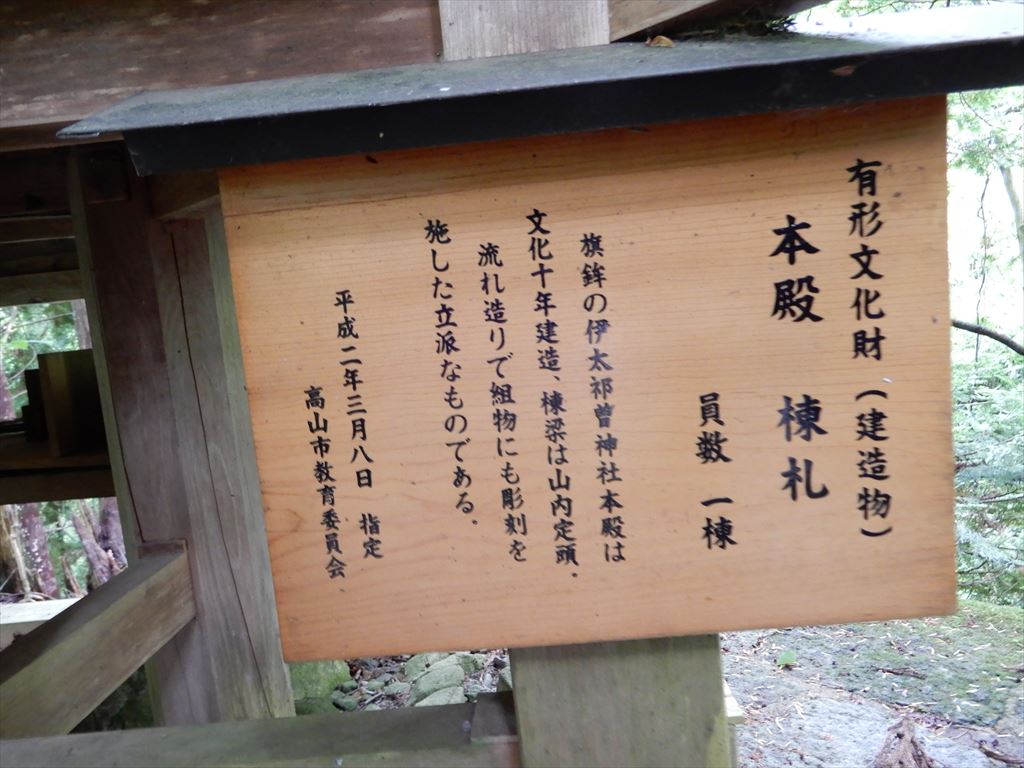 有形文化財（建造物）
本殿　棟札
員数　一棟
旗鉾の伊太祁曽神社本殿は
文化十年建造、棟梁は山内定頭.
流れ造りで組物にも彫刻を
施した立派なものである.
平成二年三月八日　指定
高山市教育委員会